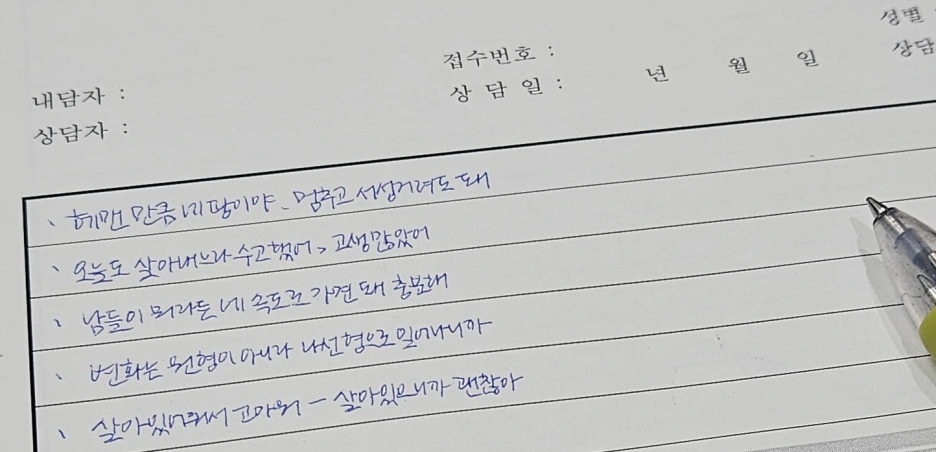 성별
접수번호 :
상담
내담자 :
상 담 일 : 년 월 일
상담자 :
、 헤맨 만큼 네 땅이야. 멈추고 서성거려도 돼
、 오늘도 살아내느라 수고했어, 고생많았어
、 남들이 뭐라든 네 속도로 가면 돼 충분해
、 변화는 원형이 아니라 나선형으로 일어나니까
、 살아있어줘서 고마워 – 살아있으니까 괜찮아